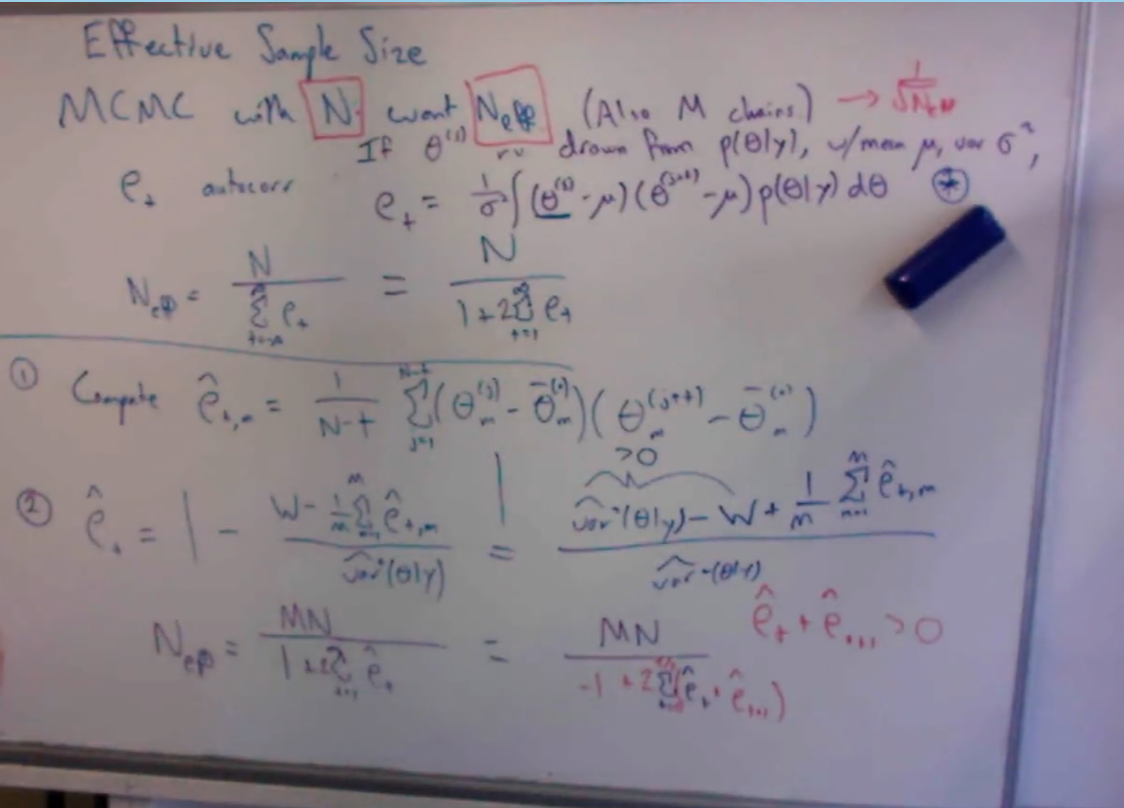 Effective Sample Size
MCMC with N want N_eff (Also M chains) → 1/√N_eff
If θ^(j) rv drawn from p(θ|y), w/mean μ, var σ²,
ρ_t autocorr ρ_t = 1/σ² ∫(θ^(j) - μ)(θ^(j+t) - μ)p(θ|y) dθ ⊛
N_eff = N / Σ_{t=-∞}^{∞} ρ_t = N / (1+2Σ_{t=1}^{∞} ρ_t)
① Compute ρ̂_{t,m} = 1/(N-t) Σ_{j=1}^{N-t} (θ_m^(j) - θ̄_m^(·))(θ_m^(j+t) - θ̄_m^(·))
>0
② ρ̂_t = 1 - (W - 1/M Σ_{m=1}^{M} ρ̂_{t,m}) / var̂⁺(θ|y) | = (var̂⁺(θ|y) - W + 1/M Σ_{m=1}^{M} ρ̂_{t,m}) / var̂⁺(θ|y)
N_eff = MN / (1+2Σ_{t=1} ρ̂_t) = MN / (-1 + 2Σ(ρ̂_t + ρ̂_{t+1})) ρ̂_t + ρ̂_{t+1} > 0